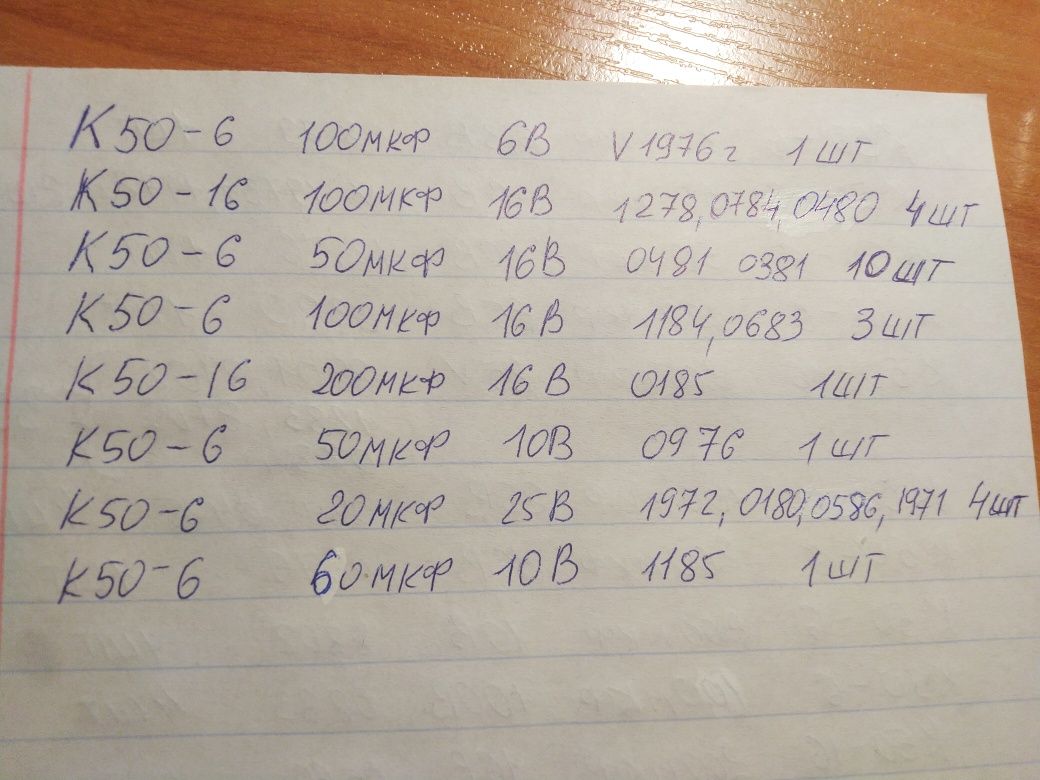 К50-6 100мкф 6В V1976г 1шт
К50-16 100мкф 16В 1278,0784,0480 4шт
К50-6 50мкф 16В 0481 0381 10шт
К50-6 100мкф 16В 1184,0683 3шт
К50-16 200мкф 16В 0185 1шт
К50-6 50мкф 10В 0976 1шт
К50-6 20мкф 25В 1972, 0180,0586,1971 4шт
К50-6 60мкф 10В 1185 1шт